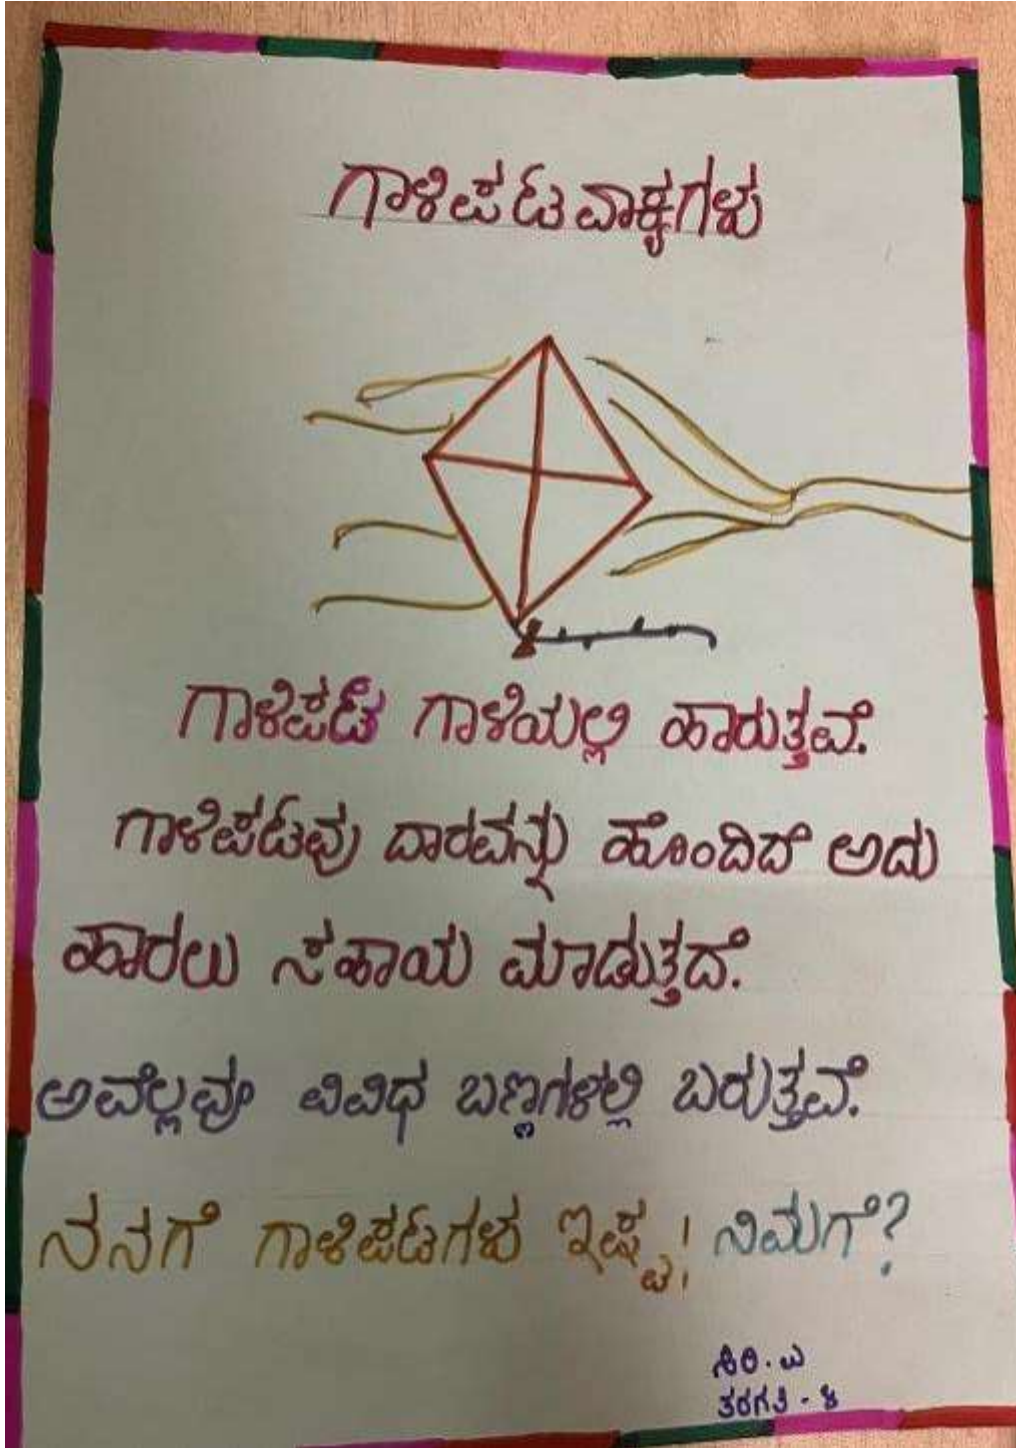 ಗಾಳಿಪಟ ವಾಕ್ಯಗಳು
ಗಾಳಿಪಟ ಗಾಳಿಯಲ್ಲಿ ಹಾರುತ್ತವೆ.
ಗಾಳಿಪಟವು ದಾರವನ್ನು ಹೊಂದಿದೆ ಅದು
ಹಾರಲು ಸಹಾಯ ಮಾಡುತ್ತದೆ.
ಅವೆಲ್ಲವೂ ವಿವಿಧ ಬಣ್ಣಗಳಲ್ಲಿ ಬರುತ್ತವೆ.
ನನಗೆ ಗಾಳಿಪಟಗಳು ಇಷ್ಟ! ನಿಮಗೆ?
ಸಿರಿ. ಎ
ತರಗತಿ - ೪